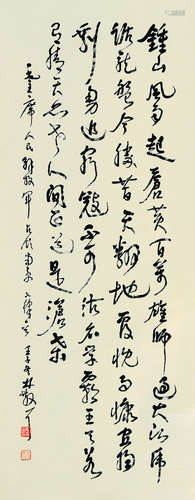 鍾山風雨起蒼黃百萬雄師過大江虎
踞龍盤今勝昔天翻地覆慨而慷宜將
剩勇追窮寇不可沽名學霸王天若
有情天亦老人間正道是滄桑
毛主席人民解放軍占領南京 林散耳